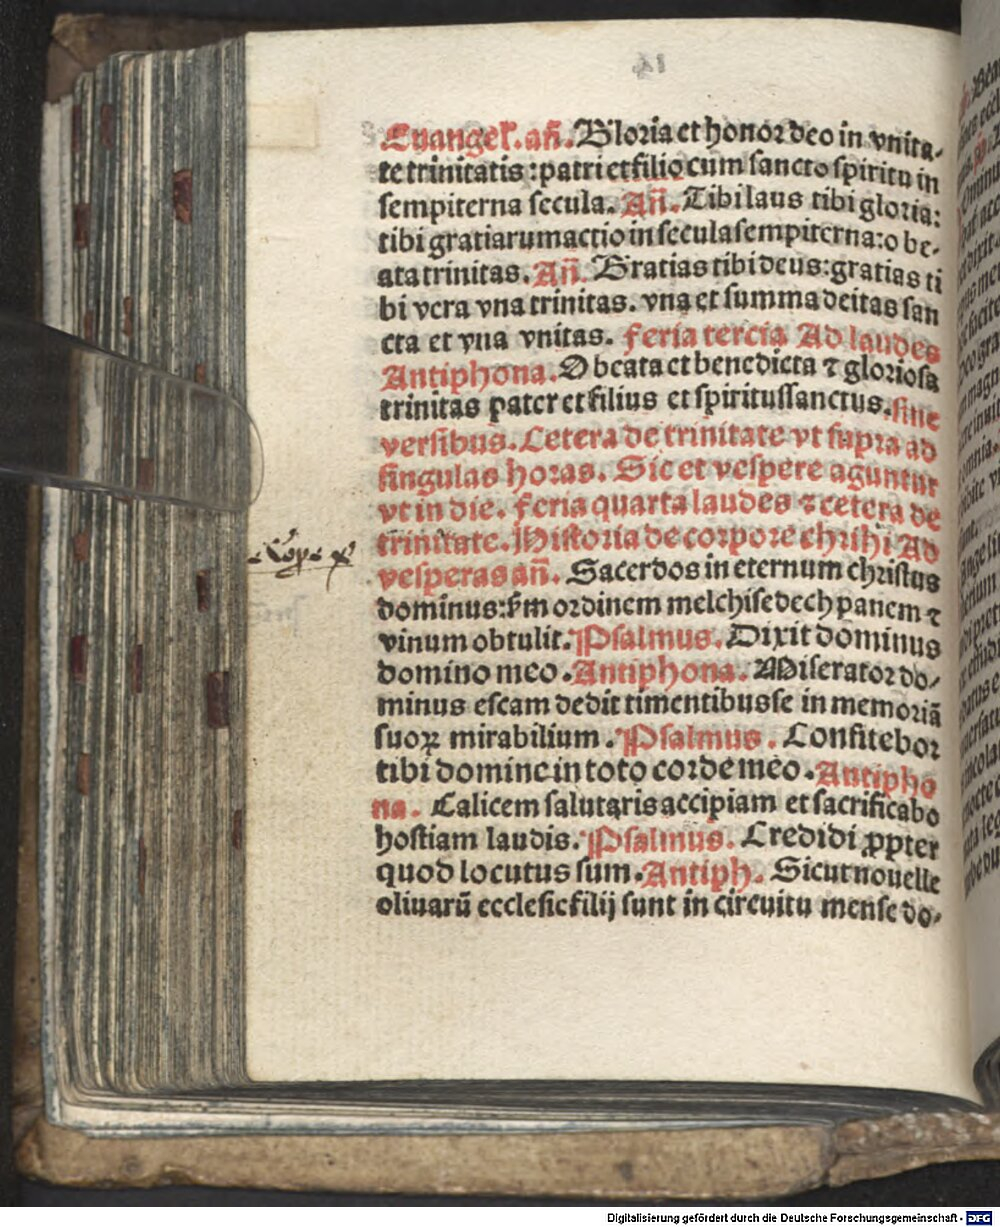 Euangel'. an̄. Gloria et honor deo in vnita⸗
te trinitatis : patri et filio cum sancto spiritu in
sempiterna secula. An̄. Tibi laus tibi gloria:
tibi gratiarum actio in secula sempiterna: o be⸗
ata trinitas. An̄. Gratias tibi deus: gratias ti
bi vera vna trinitas. vna et summa deitas san
cta et vna vnitas. Feria tercia Ad laudes
Antiphona. O beata et benedicta ⁊ gloriosa
trinitas pater et filius et spiritussanctus. sine
versibus. Cetera de trinitate vt supra ad
singulas horas. Sic et vespere aguntur
vt in die. Feria quarta laudes ⁊ cetera de
trinitate. Historia de corpore christi Ad
vesperas an̄. Sacerdos in eternum christus
dominus: s̄m ordinem melchisedech panem ⁊
vinum obtulit. Psalmus. Dixit dominus
domino meo. Antiphona. Miserator do⸗
minus escam dedit timentibus se in memoriā
suoꝝ mirabilium. Psalmus. Confitebor
tibi domine in toto corde meo. Antipho
na. Calicem salutaris accipiam et sacrificabo
hostiam laudis. Psalmus. Credidi ꝓpter
quod locutus sum. Antiph. Sicut nouelle
oliuarū ecclesie filij sunt in circuitu mense do⸗
Digitalisierung gefördert durch die Deutsche Forschungsgemeinschaft - DFG